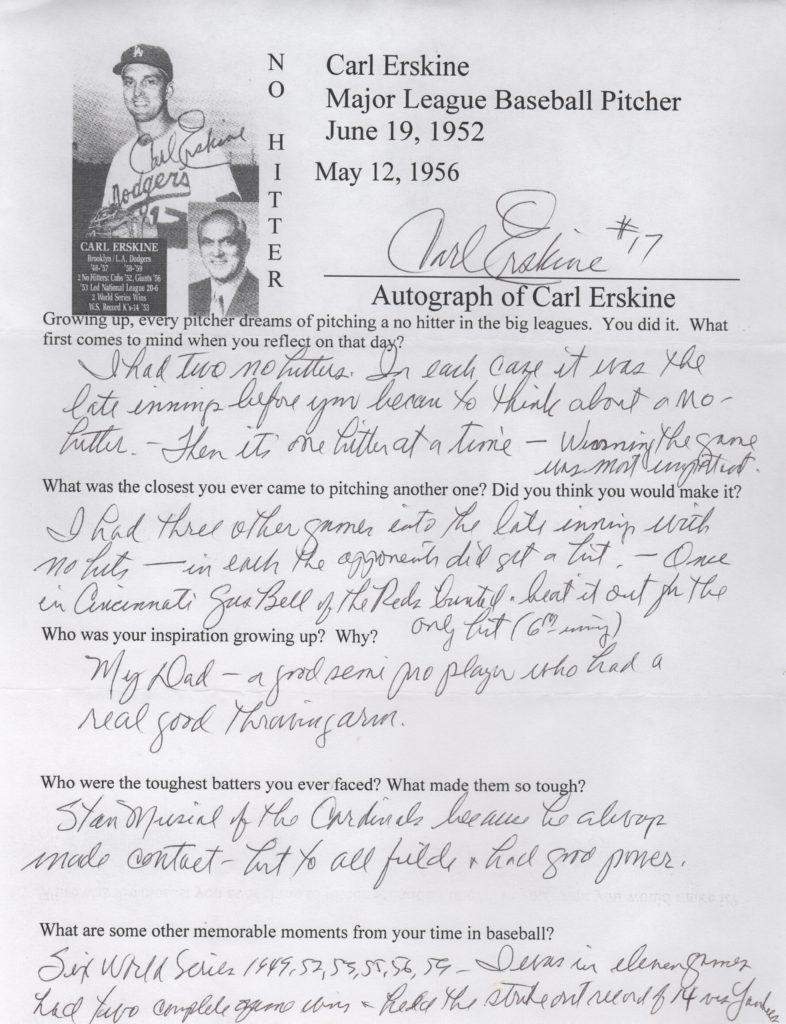 NO HITTER
Carl Erskine
Major League Baseball Pitcher
June 19, 1952
May 12, 1956
Carl Erskine
Dodgers
17
CARL ERSKINE
Brooklyn/L.A. Dodgers
'48-'57 '58-'59
2 No Hitters: Cubs '52, Giants '56
'53 Led National League 20-6
2 World Series Wins
W.S. Record K's-14 '53
Carl Erskine #17
Autograph of Carl Erskine
Growing up, every pitcher dreams of pitching a no hitter in the big leagues. You did it. What
first comes to mind when you reflect on that day?
I had two no hitters. In each case it was the
late innings before you began to think about a no-
hitter. - Then its one hitter at a time - Winning the game
was most important.
What was the closest you ever came to pitching another one? Did you think you would make it?
I had three other games into the late innings with
no hits - in each the opponents did get a hit. - Once
in Cincinnati Gus Bell of the Reds bunted & beat it out for the
only hit (6th inning)
Who was your inspiration growing up? Why?
My Dad - a good semi pro player who had a
real good throwing arm.
Who were the toughest batters you ever faced? What made them so tough?
Stan Musial of the Cardinals because he always
made contact - hit to all fields & had good power.
What are some other memorable moments from your time in baseball?
Six World Series 1949, 52, 53, 55, 56, 59 - I was in eleven games
had two complete game wins & held the strike out record of 14 vs Yankees